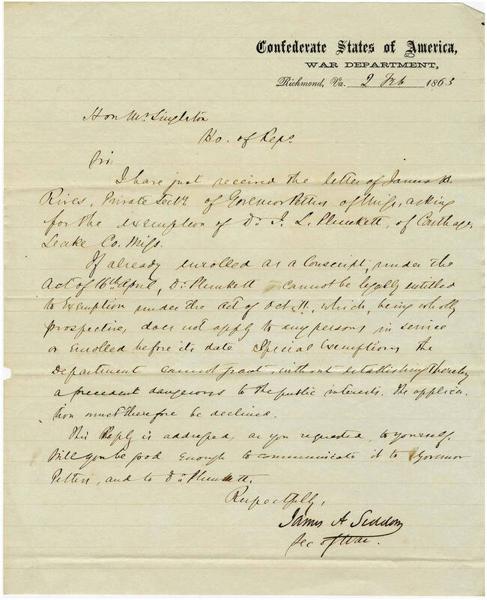 Confederate States of America,
WAR DEPARTMENT,
Richmond, Va. 2 Feb 1863
Hon Mr Singleton
Ho. of Reps
Sir
I have just received the letter of James H.
Rives, Private Secty of Governor Pettus of Miss, asking
for the exemption of Dr J. L. Plunkett, of Carthage,
Leake Co. Miss.
If already enrolled as a Conscript, under the
Act of 16th April, Dr Plunkett cannot be legally entitled
to Exemption under the Act of Oct. 11, which, being wholly
prospective, does not apply to any persons in service
or enrolled before its date Special Exemptions the
Department cannot grant, without establishing thereby
a precedent dangerous to the public interests. The applica-
tion must therefore be declined.
This Reply is addressed, as you requested, to yourself.
Will you be good enough to communicate it to Governor
Pettus, and to Dr Plunkett.
Respectfully,
James A Seddon
Sec of War.